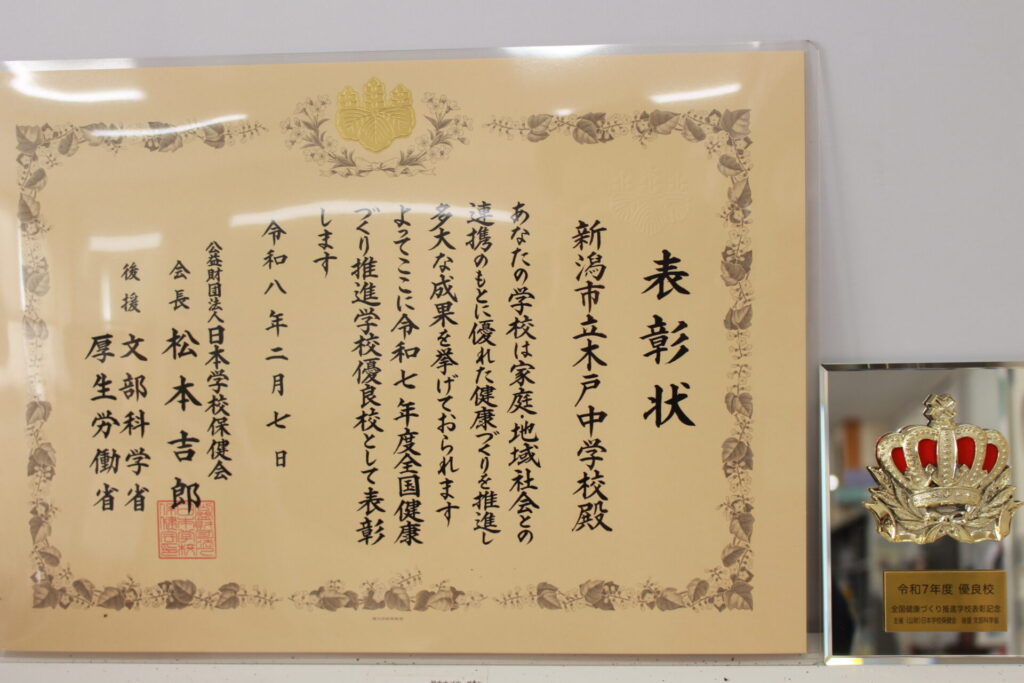 表彰状
新潟市立木戸中学校殿
あなたの学校は家庭、地域社会との
連携のもとに優れた健康づくりを推進し
多大な成果を挙げておられます
よってここに令和七年度全国健康
づくり推進学校優良校として表彰
します
令和八年二月七日
公益財団法人日本学校保健会
会長 松本吉郎
後援 文部科学省
厚生労働省
令和7年度 優良校
全国健康づくり推進学校表彰記念
主催 (公財)日本学校保健会 後援 文部科学省